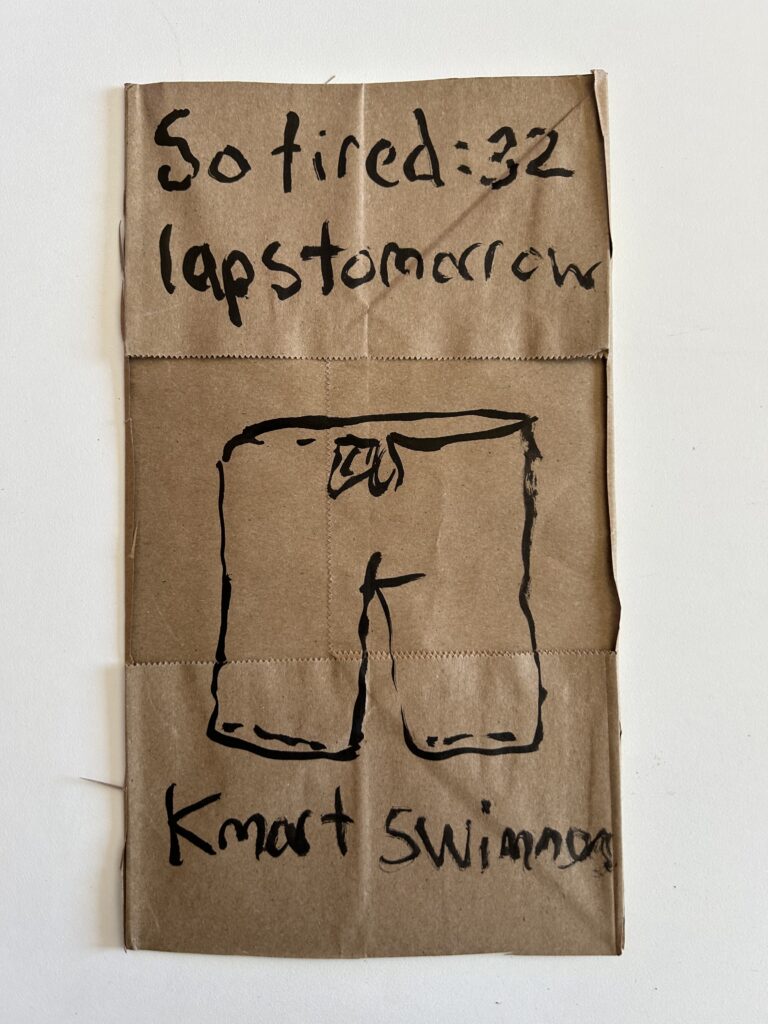 So tired: 32
laps tomorrow
Kmart swimmers